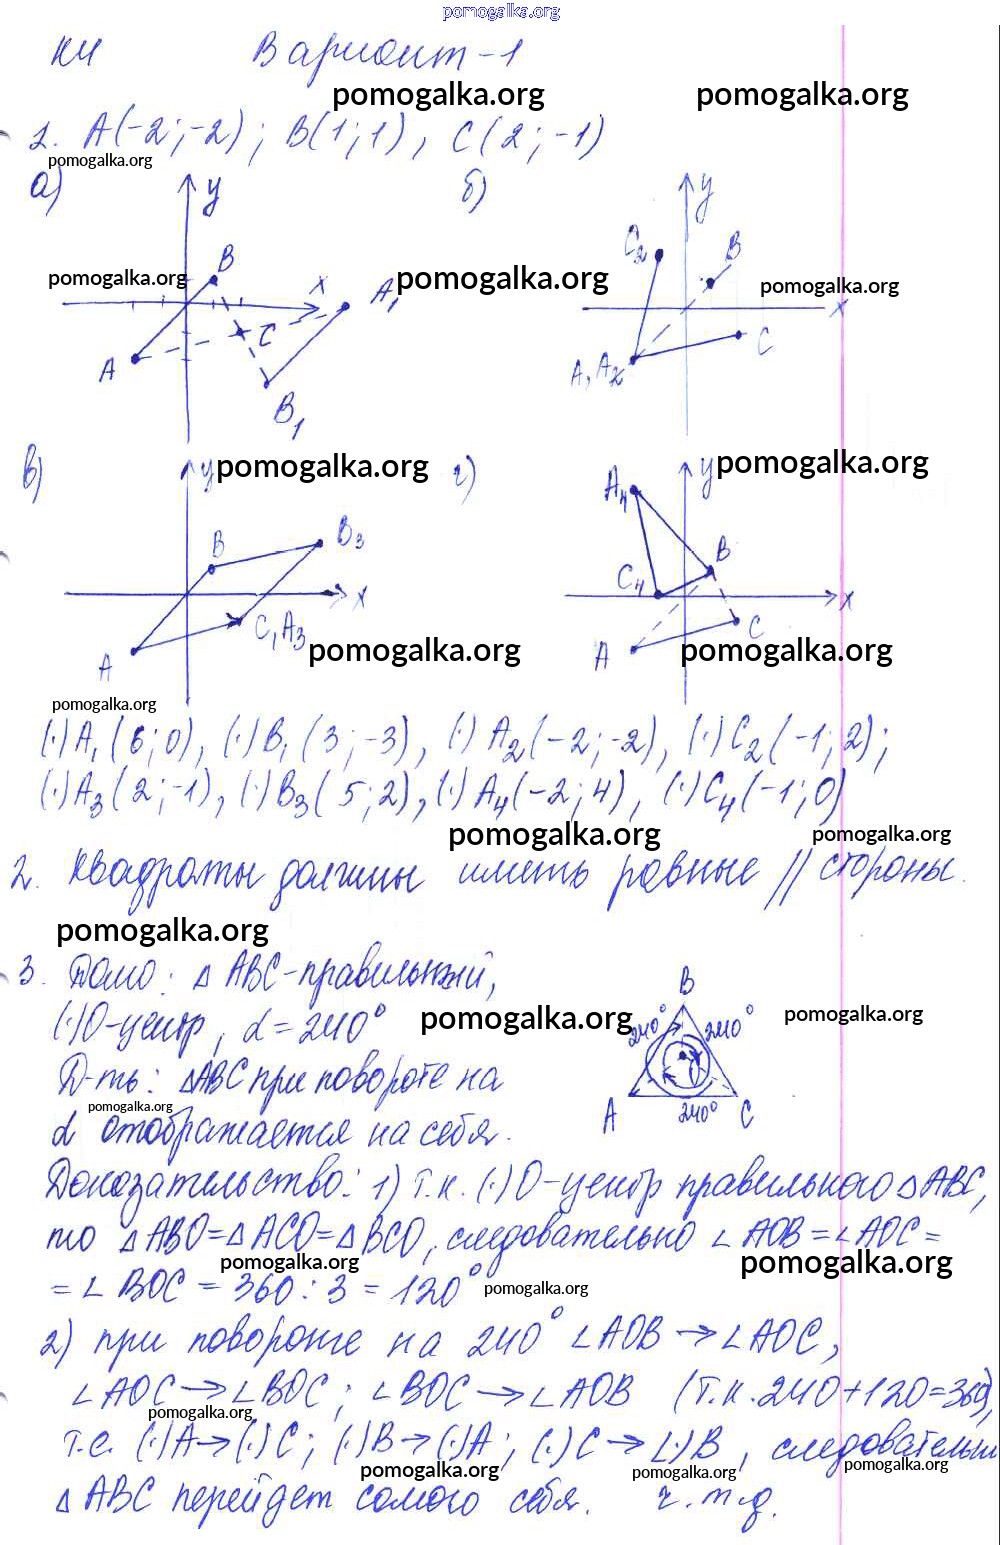 pomogalka.org
К4 Вариант-1
pomogalka.org pomogalka.org
1. A(-2;-2); B(1;1), C(2;-1)
pomogalka.org
а) y б) y
B C2 B
pomogalka.org x pomogalka.org A1 pomogalka.org
C x
A A, A2 C
B1
в) y pomogalka.org г) A4 y pomogalka.org
B B3 B
x C4 x
A C, A3 pomogalka.org A C pomogalka.org
pomogalka.org
(·)A1(6;0), (·)B1(3;-3), (·)A2(-2;-2), (·)C2(-1;2);
(·)A3(2;-1), (·)B3(5;2), (·)A4(-2;4), (·)C4(-1;0)
pomogalka.org pomogalka.org
2. Квадраты должны иметь равные // стороны.
pomogalka.org
3. Дано: △ABC-правильный, B
(·)O-центр, α=240° pomogalka.org 240° 240° pomogalka.org
Д-ть: △ABC при повороте на
pomogalka.org A 240° C
α отображается на себя.
Доказательство: 1) т.к. (·)O-центр правильного △ABC,
то △ABO=△ACO=△BCO, следовательно ∠AOB=∠AOC=
pomogalka.org pomogalka.org
=∠BOC=360:3=120° pomogalka.org
2) при повороте на 240° ∠AOB→∠AOC,
∠AOC→∠BOC; ∠BOC→∠AOB (т.к. 240+120=360),
pomogalka.org
т.е. (·)A→(·)C; (·)B→(·)A; (·)C→(·)B, следовательно
pomogalka.org pomogalka.org pomogalka.org
△ABC перейдет самого себя. ч.т.д.